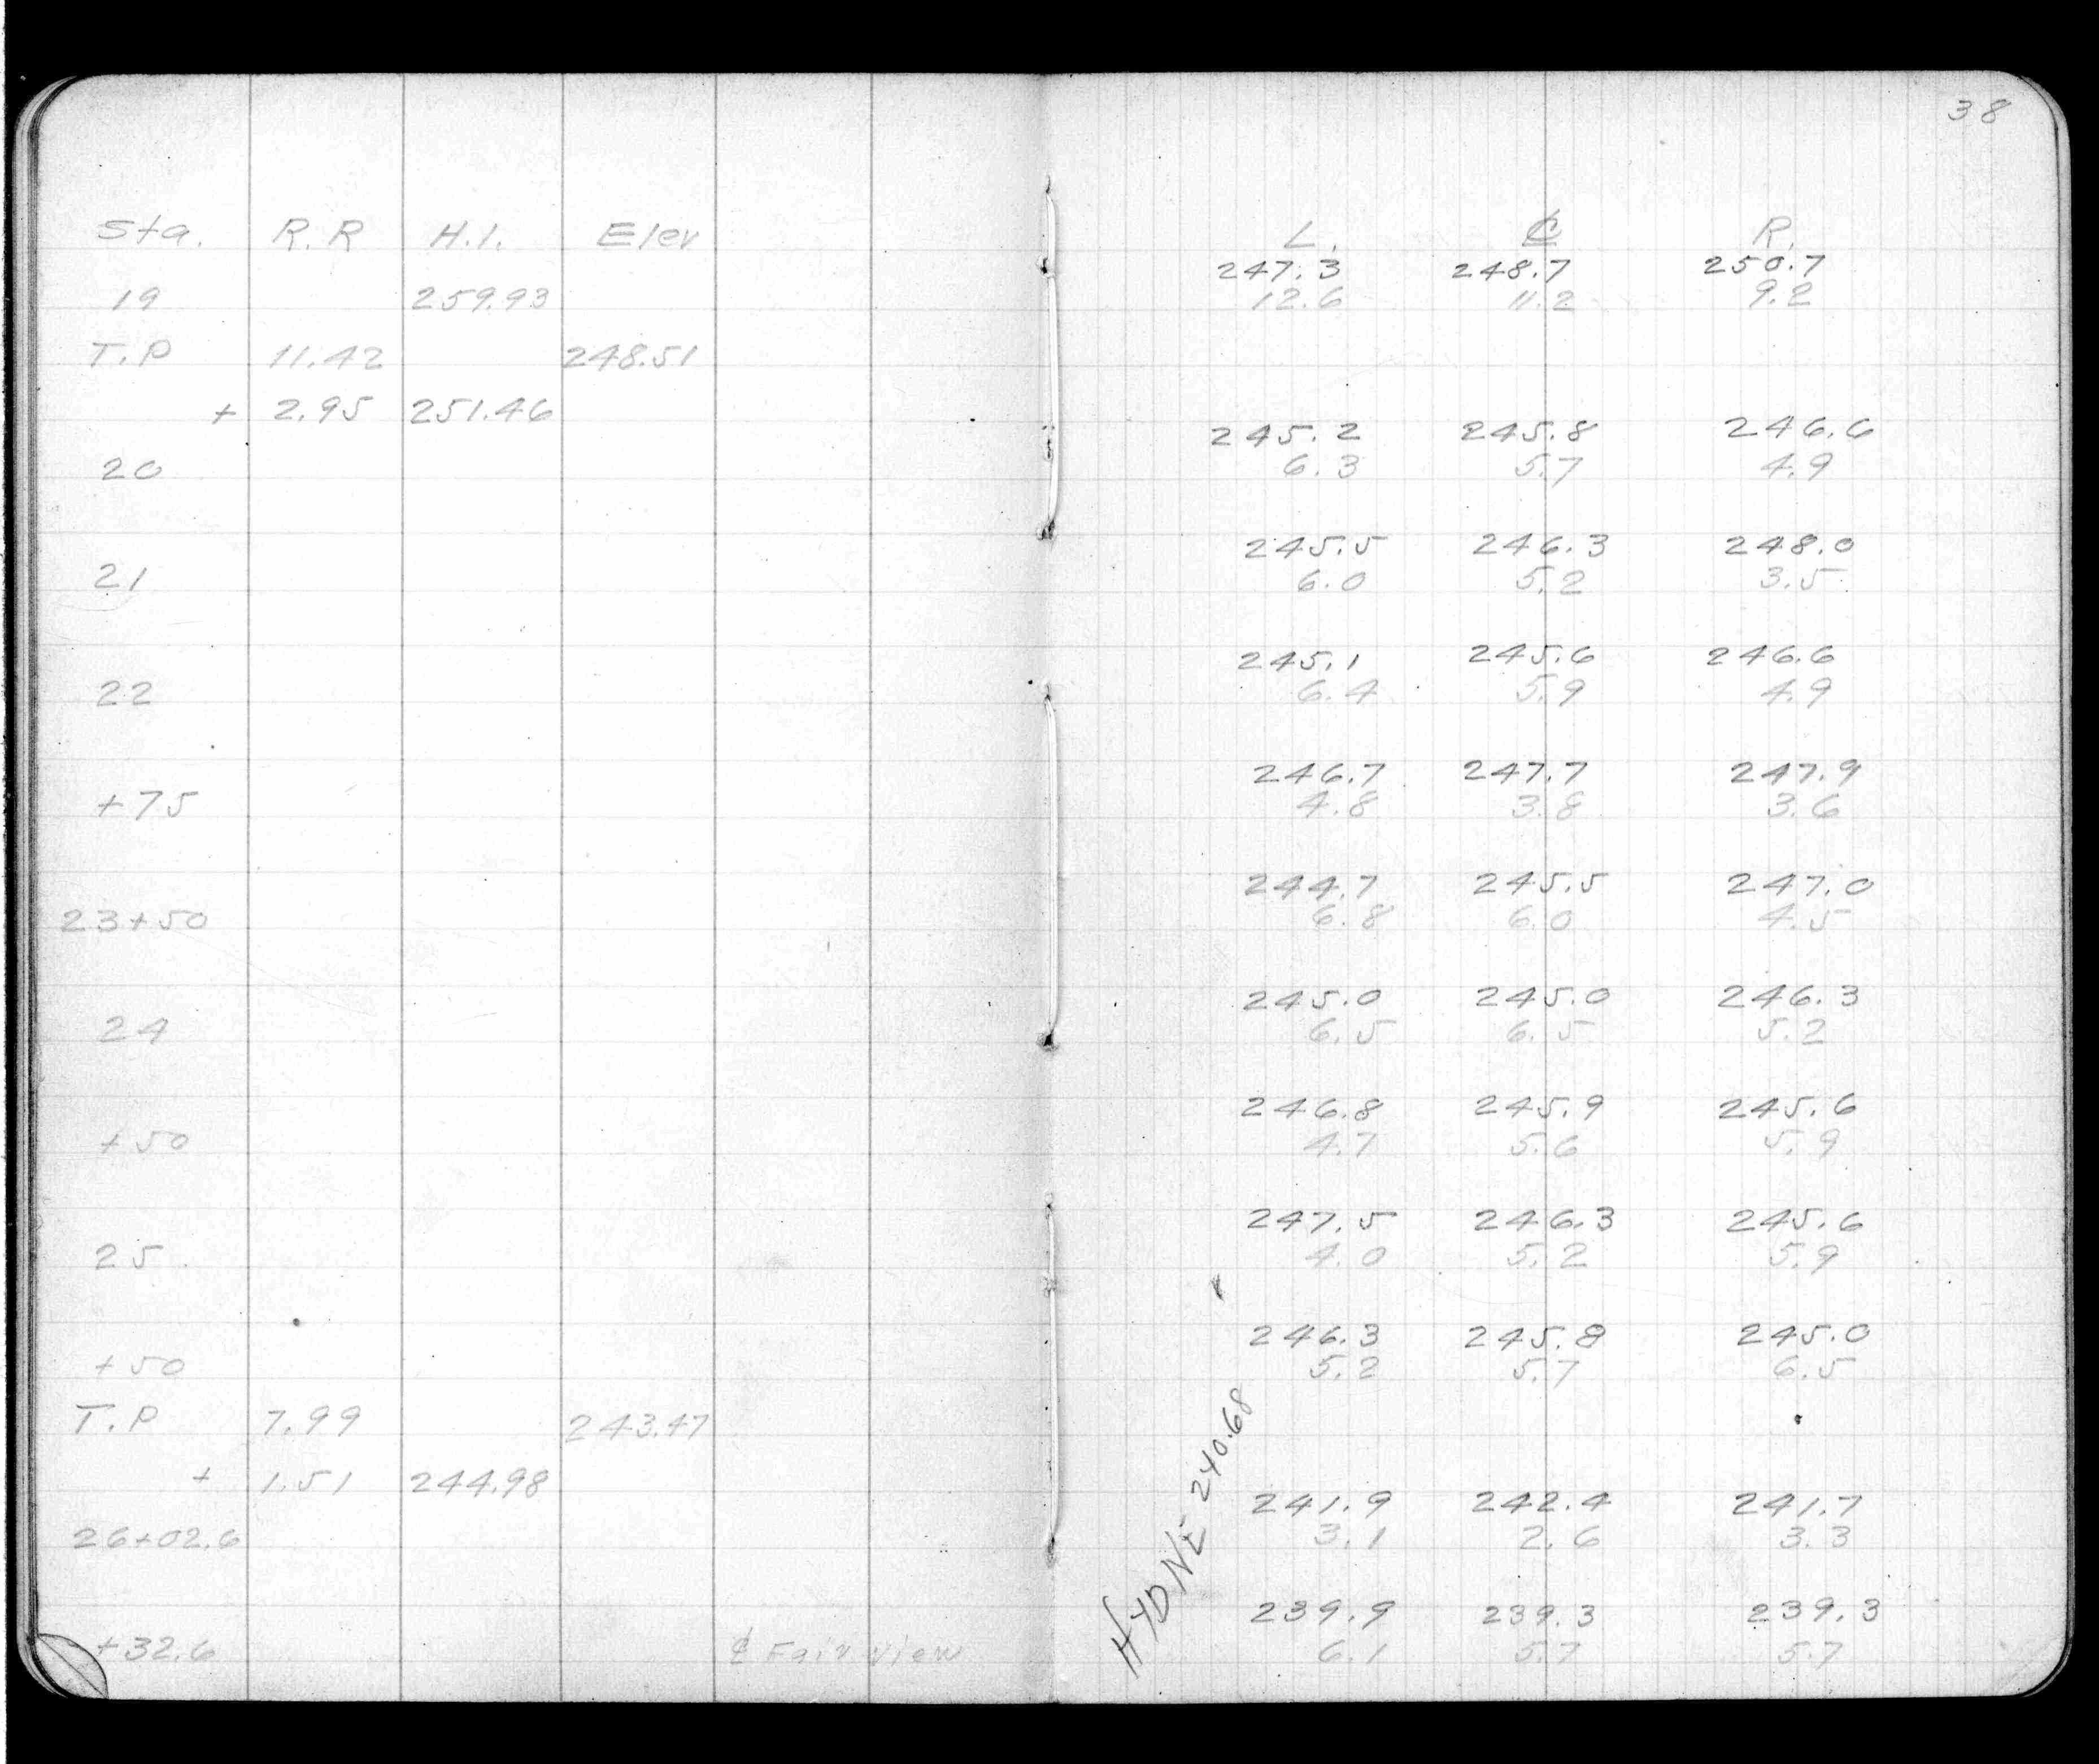 38
Sta. R.R H.I. Elev L. ℄ R.
247.3 248.7 250.7
19 259.93 12.6 11.2 9.2
T.P 11.42 248.51
+ 2.95 251.46
245.2 245.8 246.6
20 6.3 5.7 4.9
245.5 246.3 248.0
21 6.0 5.2 3.5
245.1 245.6 246.6
22 6.4 5.9 4.9
246.7 247.7 247.9
+75 4.8 3.8 3.6
244.7 245.5 247.0
23+50 6.8 6.0 4.5
245.0 245.0 246.3
24 6.5 6.5 5.2
246.8 245.9 245.6
+50 4.7 5.6 5.9
247.5 246.3 245.6
25 4.0 5.2 5.9
246.3 245.8 245.0
+50 5.2 5.7 6.5
T.P 7.99 243.47
+ 1.51 244.98
241.9 242.4 241.7
26+02.6 3.1 2.6 3.3
HYD NE 240.68
239.9 239.3 239.3
+32.6 ℄ Fairview 6.1 5.7 5.7